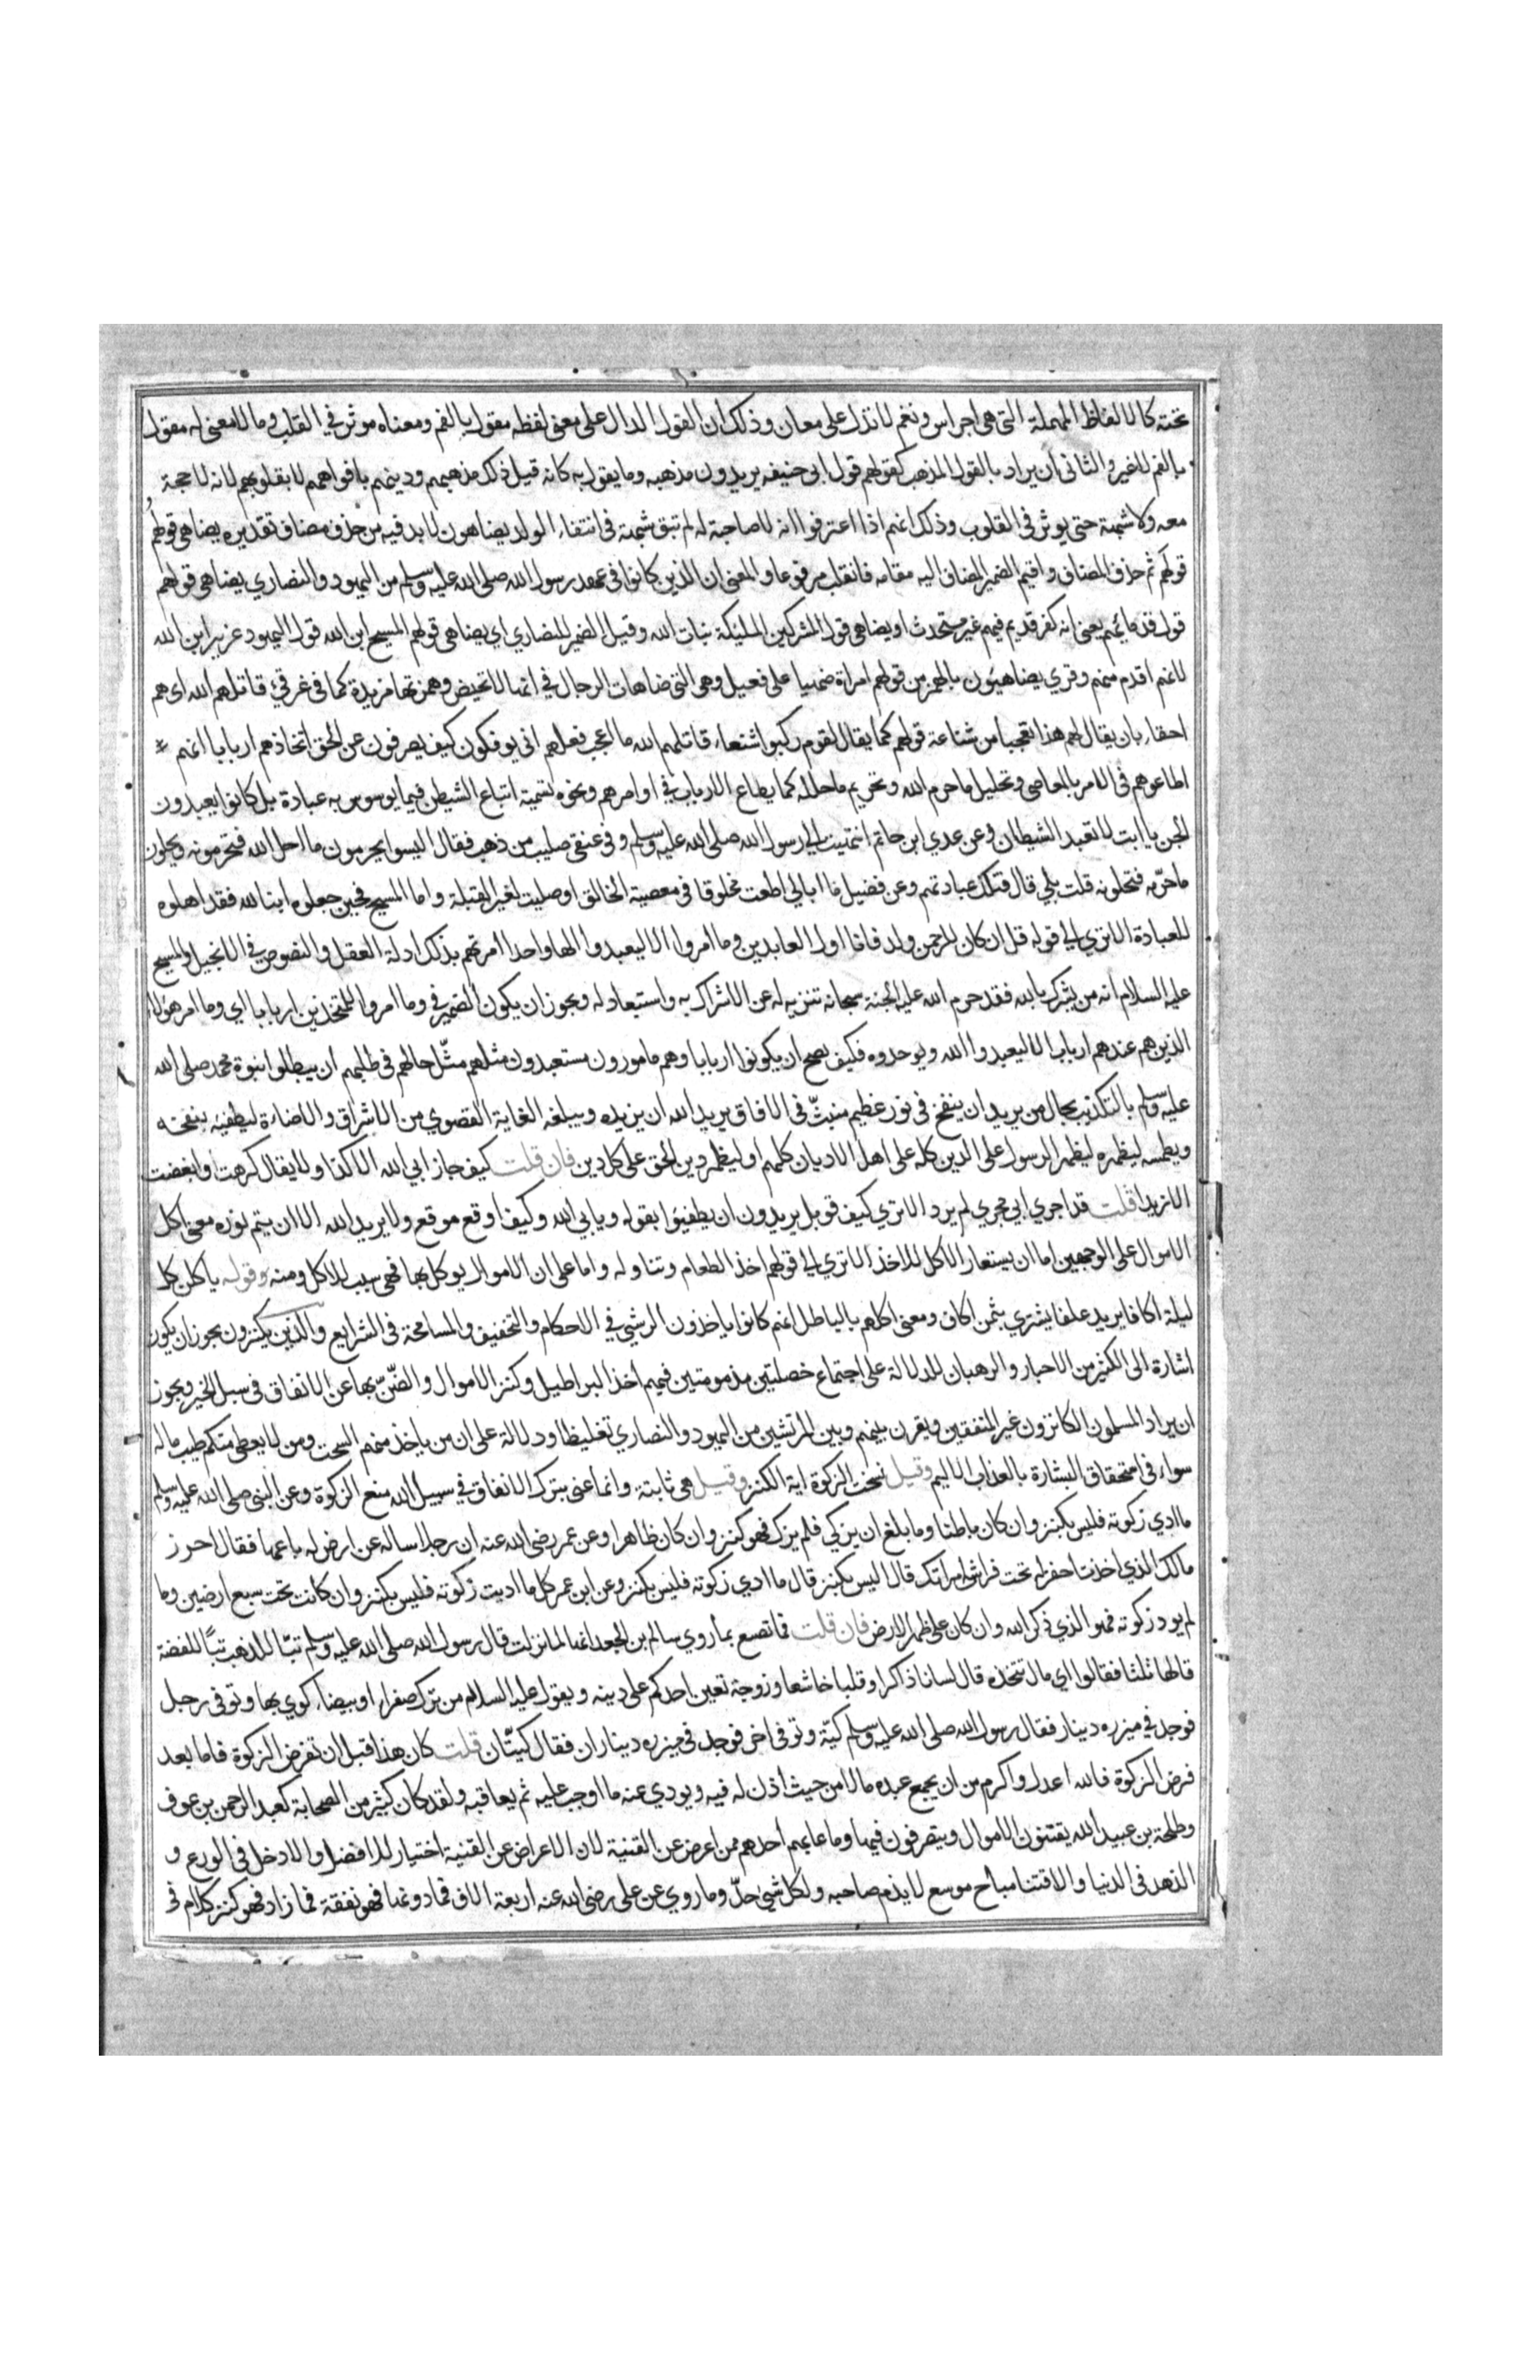 تحته كالالفاظ المهملة التى هى اجراس ونغم لا تدل على معان وذلك ان القول الدال على معنى لفظه مقول بالفم ومعناه موثر في القلب وما لا معنى له مقول
بالفم لا غير والثانى ان يراد بالقول المذهب كقولهم قول ابى حنيفه يريدون مذهبه وما يقول به كانه قيل ذلك مذهبهم ودينهم بافواههم لا بقلوبهم لانه لا حجة
معه ولا شبهة حتى يوثر فى القلوب وذلك انهم اذا اعترفوا انه لا صاحبة له لم تبق شبهة فى انتفاء الولد يضاهون لا بد فيه من حذف مضاف تقديره يضاهى قولهم
قولهم ثم حذف المضاف واقيم الضمير المضاف اليه مقامه فانقلب مرفوعا والمعنى ان الذين كانوا فى عهد رسول الله صلى الله عليه وسلم من اليهود والنصاري يضاهى قولهم
قول قدمائهم يعنى انه كفر قديم فيهم غير مستحدث او يضاهى قول المشركين الملئكة بنات الله وقيل الضمير للنصاري اي يضاهى قولهم المسيح ابن الله قول اليهود عزير ابن الله
لانهم اقدم منهم وقري يضاهيئون بالهمز من قولهم امراة ضهيا على فعيل وهى التى ضاهات الرجال في انها لا تحيض وهمزتها مزيدة كما فى غرقئ قاتلهم الله اى هم
احقاء بان يقال لهم هذا تعجبا من شناعة قولهم كما يقال لقوم ركبوا شنعاء قاتلهم الله ما اعجب فعلهم انى يوفكون كيف يصرفون عن الحق اتخاذهم اربابا انهم
اطاعوهم فى الامر بالمعاصى وتحليل ما حرم الله وتحريم ما حلله كما يطاع الارباب في اوامرهم ونحوه تسمية اتباع الشيطن فيما يوسوس به عبادة بل كانوا يعبدون
الجن يا ابت لا تعبد الشيطان وعن عدي ابن حاتم انتهيت الي رسول الله صلى الله عليه وسلم وفى عنقى صليب من ذهب فقال اليسوا يحرمون ما احل الله فتحرمونه ويحلون
ما حرّمه فتحلونه قلت بلي قال فتلك عبادتهم وعن فضيل ما ابالي اطعت مخلوقا فى معصية الخالق او صليت لغير القبلة واما المسيح فحين جعلوه ابنا لله فقد اهلوه
للعبادة الا تري الي قوله قل ان كان للرحمن ولد فانا اول العابدين وما أمروا الا ليعبدوا الها واحدا امرتهم بذلك ادلة العقل والنصوص في الانجيل والمسيح
عليه السلام انه من يشرك بالله فقد حرم الله عليه الجنة سبحانه تنزيه له عن الاشراك به واستبعاد له ويجوز ان يكون الضمير في وما امروا للمتخذين اربابا اي وما امر هؤلاء
الذين هم عندهم ارباب الا ليعبدوا الله ويوحدوه فكيف يصح ان يكونوا اربابا وهم مامورون مستعبدون مثلهم مثّل حالهم فى طلبهم أن يبطلوا نبوة محمد صلى الله
عليه وسلم بالتكذيب بحال من يريد ان ينفخ فى نور عظيم منبثّ فى الافاق يريد الله ان يزيده ويبلغه الغاية القصوي من الاشراق والاضاءة ليطفيه بنفخه
ويطمسه ليظهره ليظهر الرسول على الدين كله على اهل الاديان كلهم او ليظهر دين الحق على كل دين فان قلت كيف جاز ابي الله الا كذا ولا يقال كرهت او ابغضت
الا زيدا قلت قد اجري ابي مجري لم يرد الا تري كيف قوبل يريدون ان يطفيئوا بقوله ويابي الله وكيف اوقع موقع ولا يريد الله الا ان يتم نوره معنى اكل
الاموال على الوجهين اما ان يستعار الاكل للاخذ الا تري الي قولهم اخذ الطعام وتناوله واما على ان الاموال يوكل بها فهى سبب للاكل ومنه وقوله ياكلن كل
ليلة اكافا يريد علفا يشتري بثمن اكاف ومعنى اكلهم بالباطل انهم كانوا ياخذون الرشي في الاحكام والتخفيف والمسامحة فى الشرايع والذين يكنزون يجوز ان يكون
اشارة الى الكثير من الاحبار والرهبان للدلالة على اجتماع خصلتين مذمومتين فيهم أخذ البراطيل وكنز الاموال والضّنّ بها عن الانفاق فى سبل الخير ويجوز
ان يراد المسلمون الكانزون غير المنفقين ويقرن بينهم وبين المرتشين من اليهود والنصاري تغليظا ودلالة على ان من ياخذ منهم السحت ومن لا يعطى منكم طيب ماله
سواء فى استحقاق البشارة بالعذاب الاليم وقيل نسخت الزكوة اية الكنز وقيل هى ثابتة وانما عنى بترك الانفاق في سبيل الله منع الزكوة وعن النبى صلى الله عليه وسلم
ما ادي زكوته فليس بكنز وان كان باطنا وما بلغ ان يزكي فلم يزك فهو كنز وان كان ظاهرا وعن عمر رضى الله عنه ان رجلا ساله عن ارض له باعها فقال احرز
مالك الذي اخذت احفر له تحت فراش امراتك قال اليس بكنز قال ما ادي زكوته فليس بكنز وعن ابن عمر كل ما اديت زكوته فليس بكنز وان كانت تحت سبع ارضين وما
لم يود زكوته فهو الذي ذكر الله وان كان على ظهر الارض فان قلت فما تصنع بما روي سالم بن الجعد انها لما نزلت قال رسول الله صلى الله عليه وسلم تبّا للذهب تبّا للفضة
قالها ثلثا فقالوا اي مال نتخذه قال لسانا ذاكرا وقلبا خاشعا وزوجة تعين احدكم على دينه وبقوله عليه السلام من ترك صفراء او بيضاء كوي بها وتوفى رجل
فوجد في ميزره دينار فقال رسول الله صلى الله عليه وسلم كيّة وتوفى اخر فوجد فى ميزره ديناران فقال كيتّان قلت كان هذا قبل ان تفرض الزكوة فاما بعد
فرض الزكوة فالله اعدل واكرم من ان يجمع عبده مالا من حيث أذن له فيه ويودي عنه ما اوجب عليه ثم يعاقبه ولقد كان كثير من الصحابة كعبد الرحمن بن عوف
وطلحة بن عبيد الله يقتنون الاموال ويتصرفون فيها وما عابهم أحد ممن اعرض عن القنية لان الاعراض عن القنية اختيار للافضل والادخل فى الورع و
الزهد فى الدنيا والاقتنا مباح موسع لا يذم صاحبه ولكل شئ حدّ وما روي عن على رضى الله عنه اربعة الاف فما دونها فهو نفقة فما زاد فهو كنز كلام فى